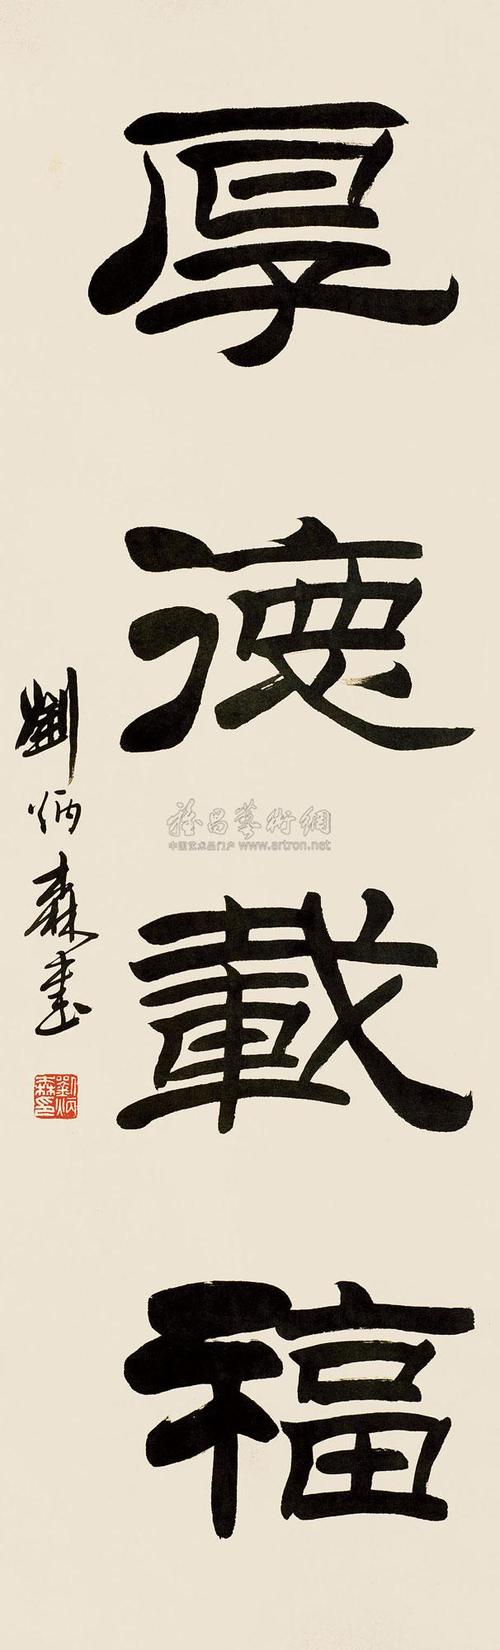 厚德載福
劉炳森書
劉炳森印
雅昌藝術網
中国艺术品门户 www.artron.net